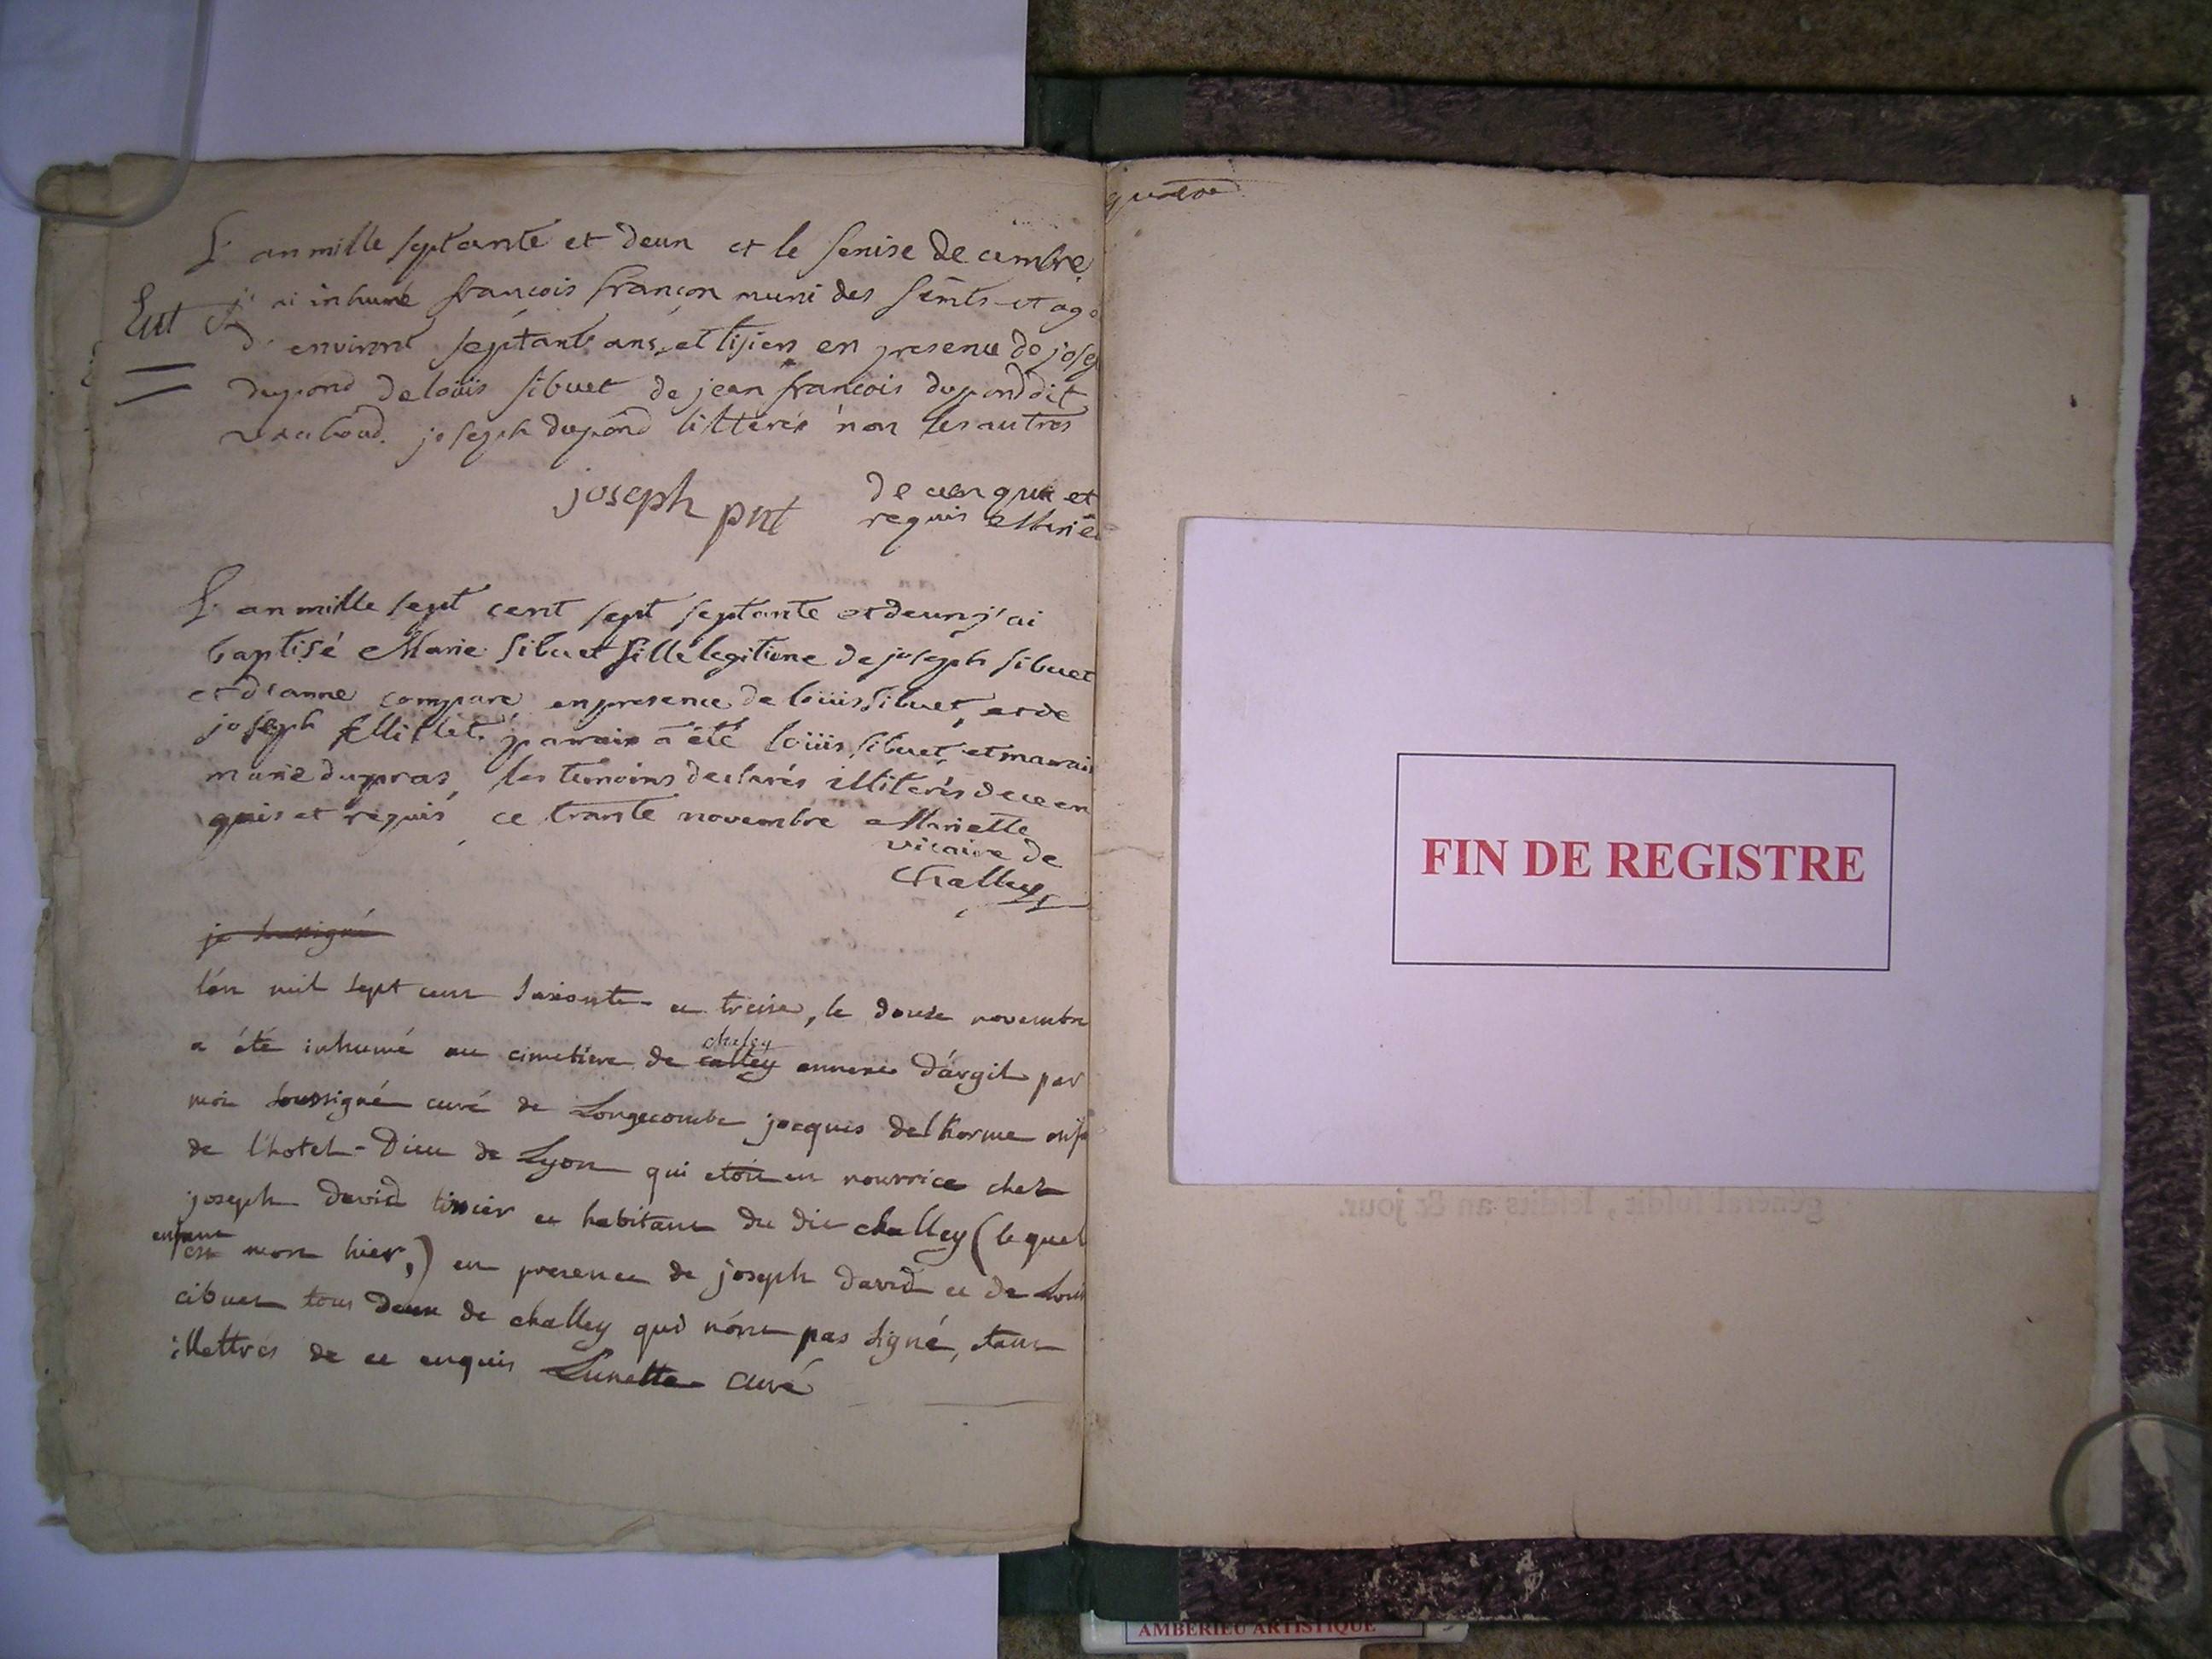 L'an mille septante et deun et le senise decembre
Ent j'ai inhumé francois françon muni des Sems et agé
d'environt septante ans, et tisien en presence de josep
dupond de loüis sibuet de jean francois dupond dit
joseph dupond litterés non les autres
joseph pnt
de cen quis et
requis Mariet
L'an mille sept cent sept septante et deun j'ai
baptisé Marie Sibuet fille legitime de joseph sibuet
et d'anne compare en presence de loüis Sibuet, et de
joseph Millet parrain a été loüis sibuet et marrai
marie dupras, les temoins declarés illiterés de ce en
quis et requis ce trante novembre Mariette
vicaire de
Challey
je soussigné
l'an mil sept cent soixante et treise, le douse novembre
a été inhumé au cimetiere de calley chaley annexe d'argit par
moi soussigné curé de Longecombe jacques delhorme
de l'hotel-Dieu de Lyon qui etoit en nourrice chez
joseph david tissier et habitant du dit challey (lequel
enfant est mort hier,) en presence de joseph david et de Loui
cibuet tous deux de challey qui n'ont pas signé, etant
illettrés de ce enquis Lunette curé
FIN DE REGISTRE
général susdit, lesdits an & jour.
AMBERIEU ARTISTIQUE